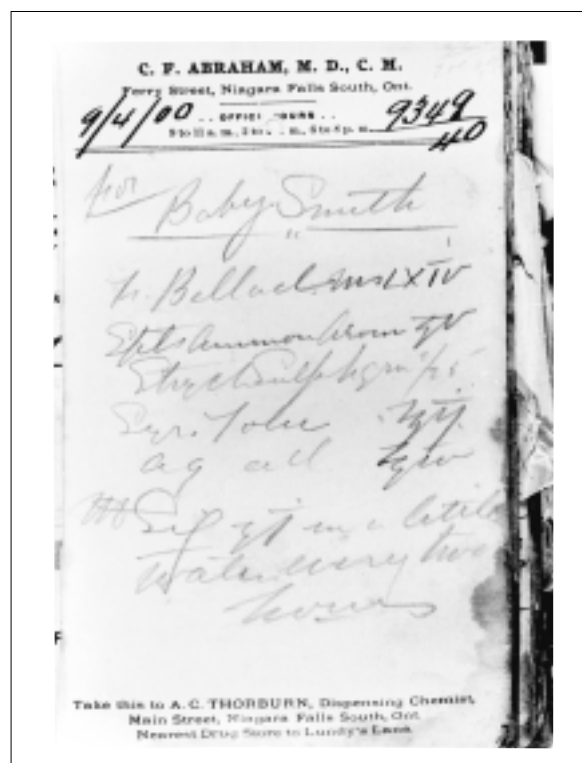 C. F. ABRAHAM, M. D., C. M.
Ferry Street, Niagara Falls South, Ont.
9/4/00 . . OFFICE HOURS . . 9349
9 to 11 a. m., 2 to m., 6 to 8 p. m. 40
for
Baby Smith
"
Tr. Bellad. ms LXIV
Spts Ammon Arom ʒv
Strych Sulph gr
Syr. Tolu ʒij
aq ad ʒiv
Sig ʒi in a little
water every two
hours
Take this to A. C. THORBURN, Dispensing Chemist,
Main Street, Niagara Falls South, Ont.
Nearest Drug Store to Lundy's Lane.